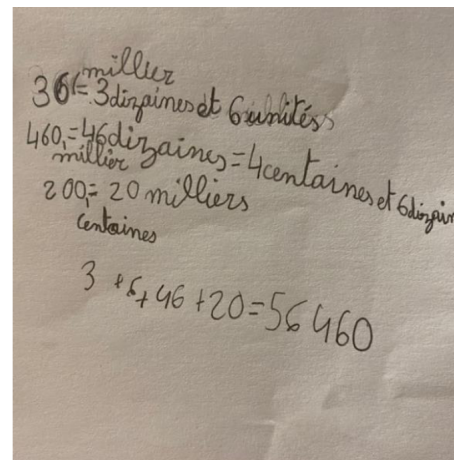 36 = 3 dizaines et 6 unités
millier
460, = 46 dizaines = 4 centaines et 6 dizain
millier
200, = 20 milliers
centaines
3 + 6 + 46 + 20 = 56 460